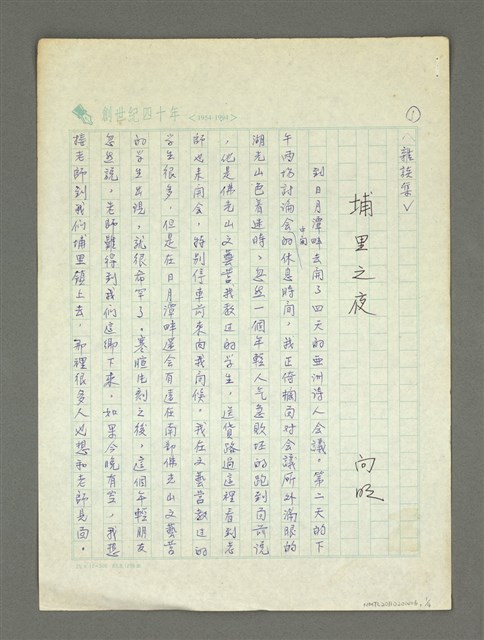 創世紀四十年 <1954-1994>
①
〈雜族集〉
埔里之夜
向明
到日月潭畔去開了四天的亞洲詩人會議。第二天的下
午兩場討論會中間的休息時間，我正倚欄面對會議所外滿眼的
湖光山色着迷時，忽然一個年輕人气急敗坯的跑到面前說
，他是佛光山文藝營我教过的学生，送貨路過這裡看到老
師也來開会，特别停車前來向我问候。我在文藝营教过的
学生很多，但是在日月潭畔還会有這在南部佛光山文藝营
的学生出現，就很希罕了。寒暄片刻之後，這個年輕朋友
忽然說，老師難得到我們這鄉下來，如果今晚有空，我想
接老師到我們埔里鎮上去，那裡很多人也想和老師見面。